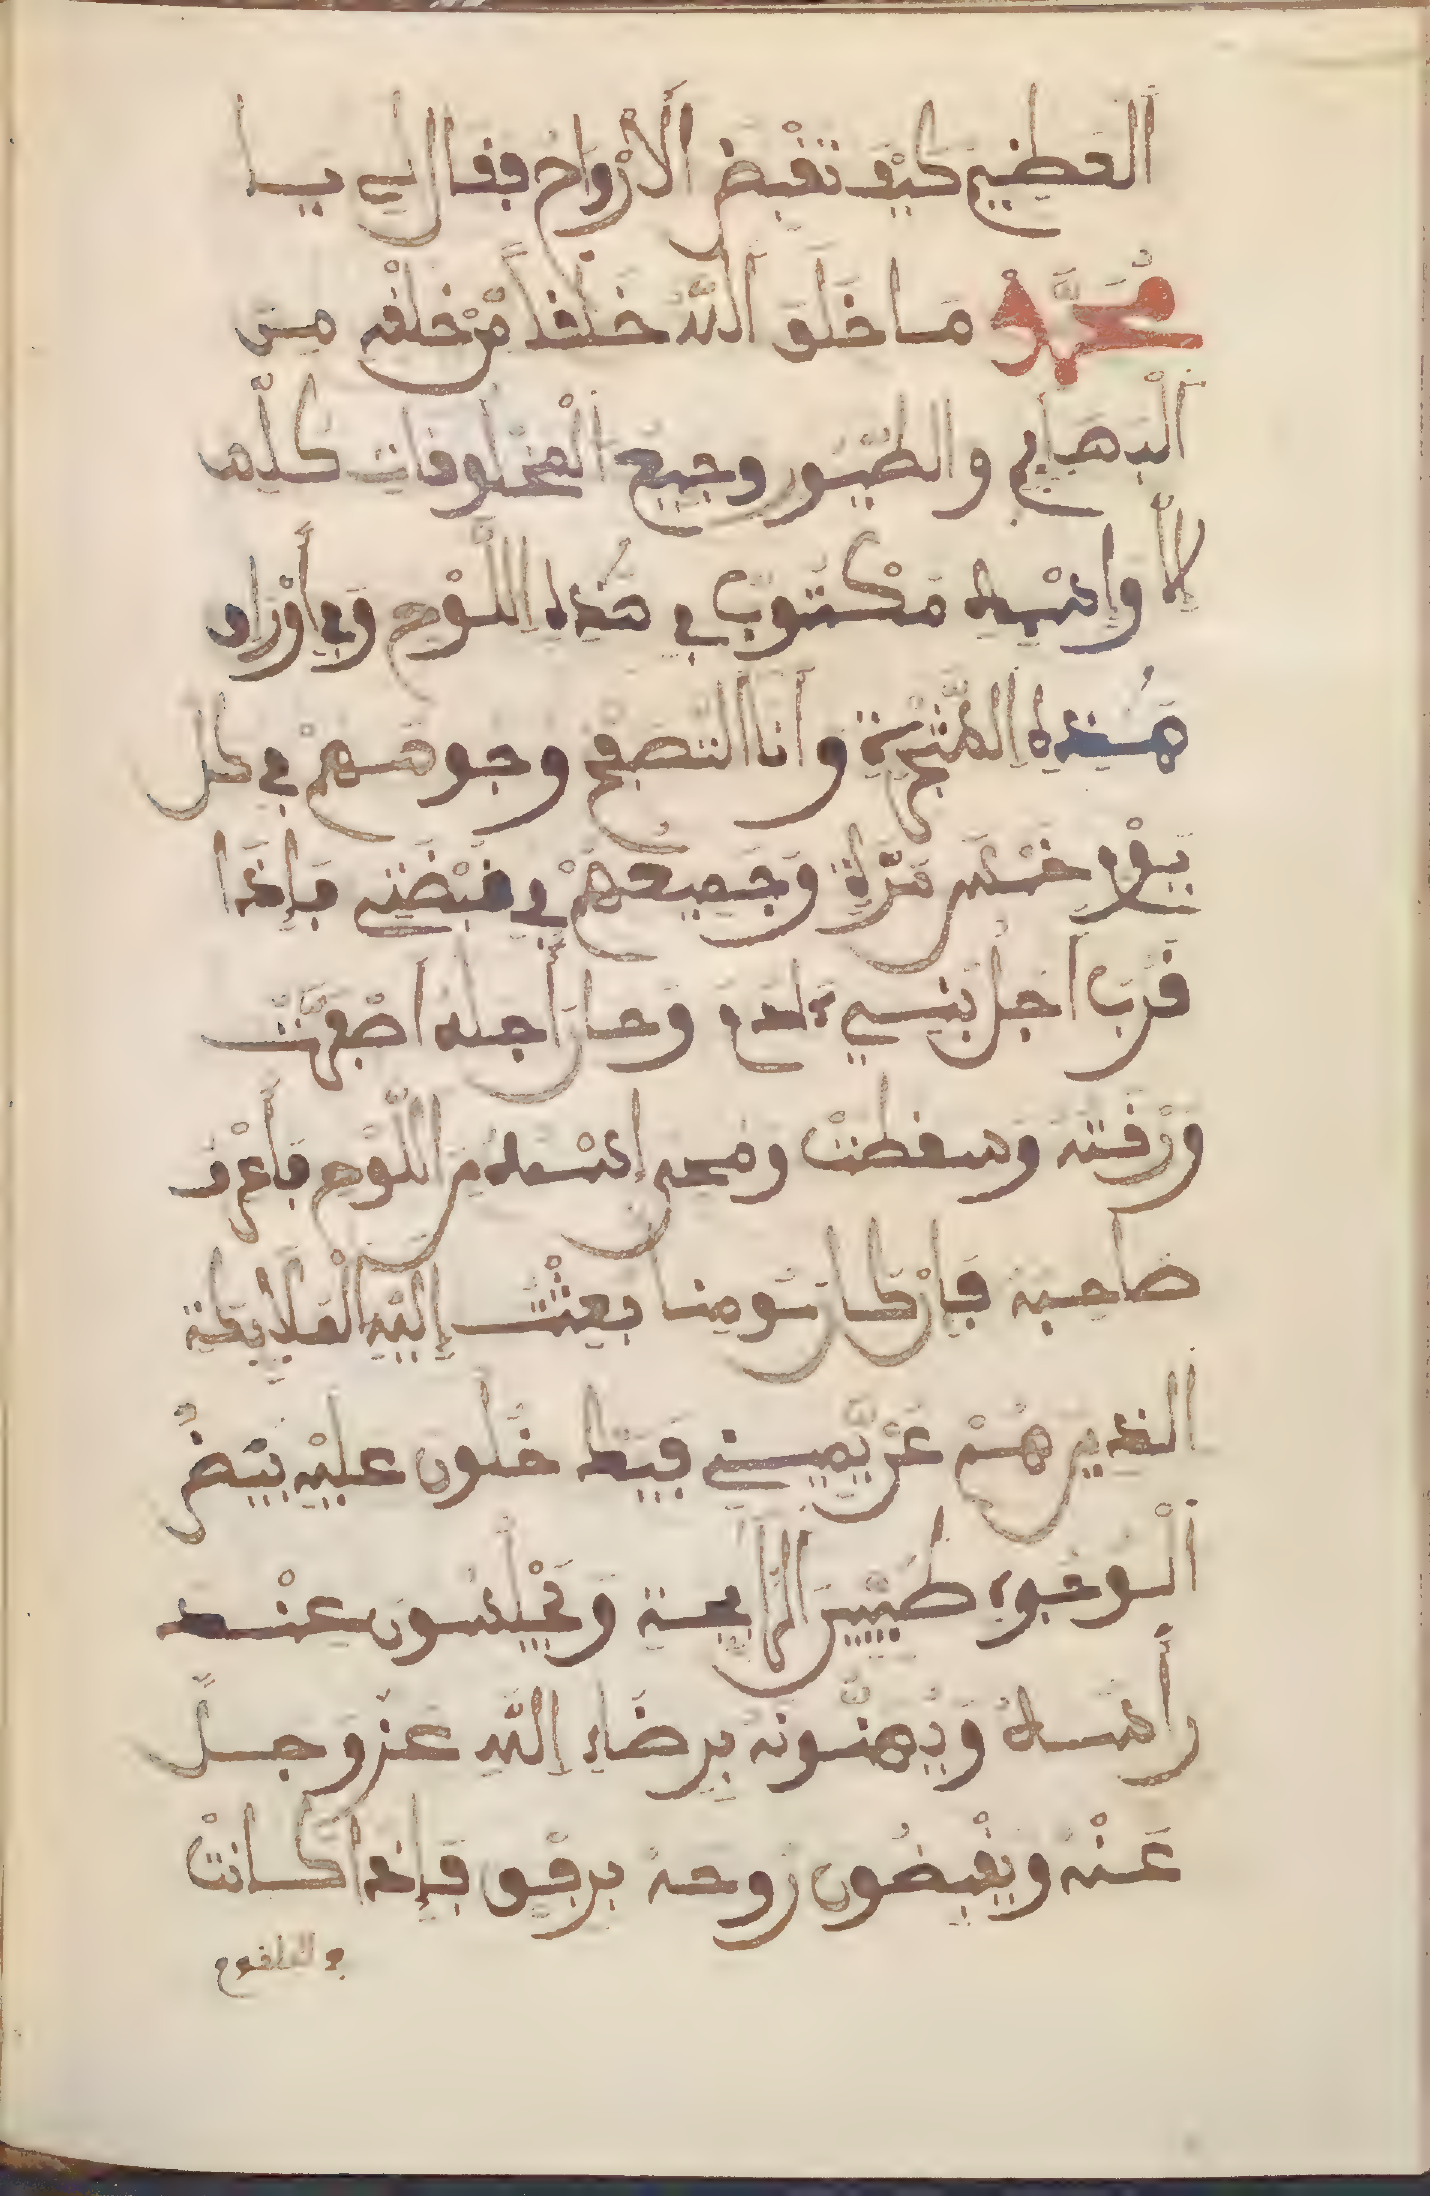 الْعَظِيمِ كَيْفَ تَقْبَضُ الْأَرْوَاحَ فَقَالَ لِي يَا
مُحَمَّدُ مَا خَلَقَ اللَّهُ خَلْقاً مِّنْ خَلْقِهِ مِنَ
الْبَهَايِمِ وَالطُّيُورِ وَجَمِيعِ الْمَخْلُوقَاتِ كُلِّهَا
إِلَّا وَإِسْمُهُ مَكْتُوبٌ فِي هَذَا اللَّوْحِ وَفِي أَوْرَاقِ
هَذِهِ الشَّجَرَةِ وَأَنَا اتَصَفَّحُ وُجُوهَهُمْ فِي كُلِّ
يَوْمٍ خَمْسَ مَرَّاةٍ وَجَمِيعُهُمْ فِي قَبْضَتِي فَإِذَا
قَرُبَ أَجَلُ بَنِي ءَادَمَ وَحَانَ أَجَلُهُ اصْفَرَّتْ
وَرْقَتُهُ وَسَقَطَتْ وَمُحِيَ إِسْمُهُ مِنَ اللَّوْحِ فَأَعْرِفُ
صَاحِبَهُ فَإِنْ كَانَ مُومِناً بَعَثْتُ إِلَيْهِ الْمَلَايِكَةَ
الَّذِينَ هُمْ عَنْ يَّمِينِي فَيَدْخُلُونَ عَلَيْهِ بِيضُ
الْوُجُوهِ طَيِّبِينَ الرَّايِحَةِ وَيَجْلِسُونَ عِنْدَ
رَأْسِهِ وَيُهَنُّونَهُ بِرِضَاءِ اللَّهِ عَزَّ وَجَلَّ
عَنْهُ وَيَقْبِضُونَ رُوحَهُ بِرِفْقٍ فَإِذَا كَانَتْ
في الحلقوم